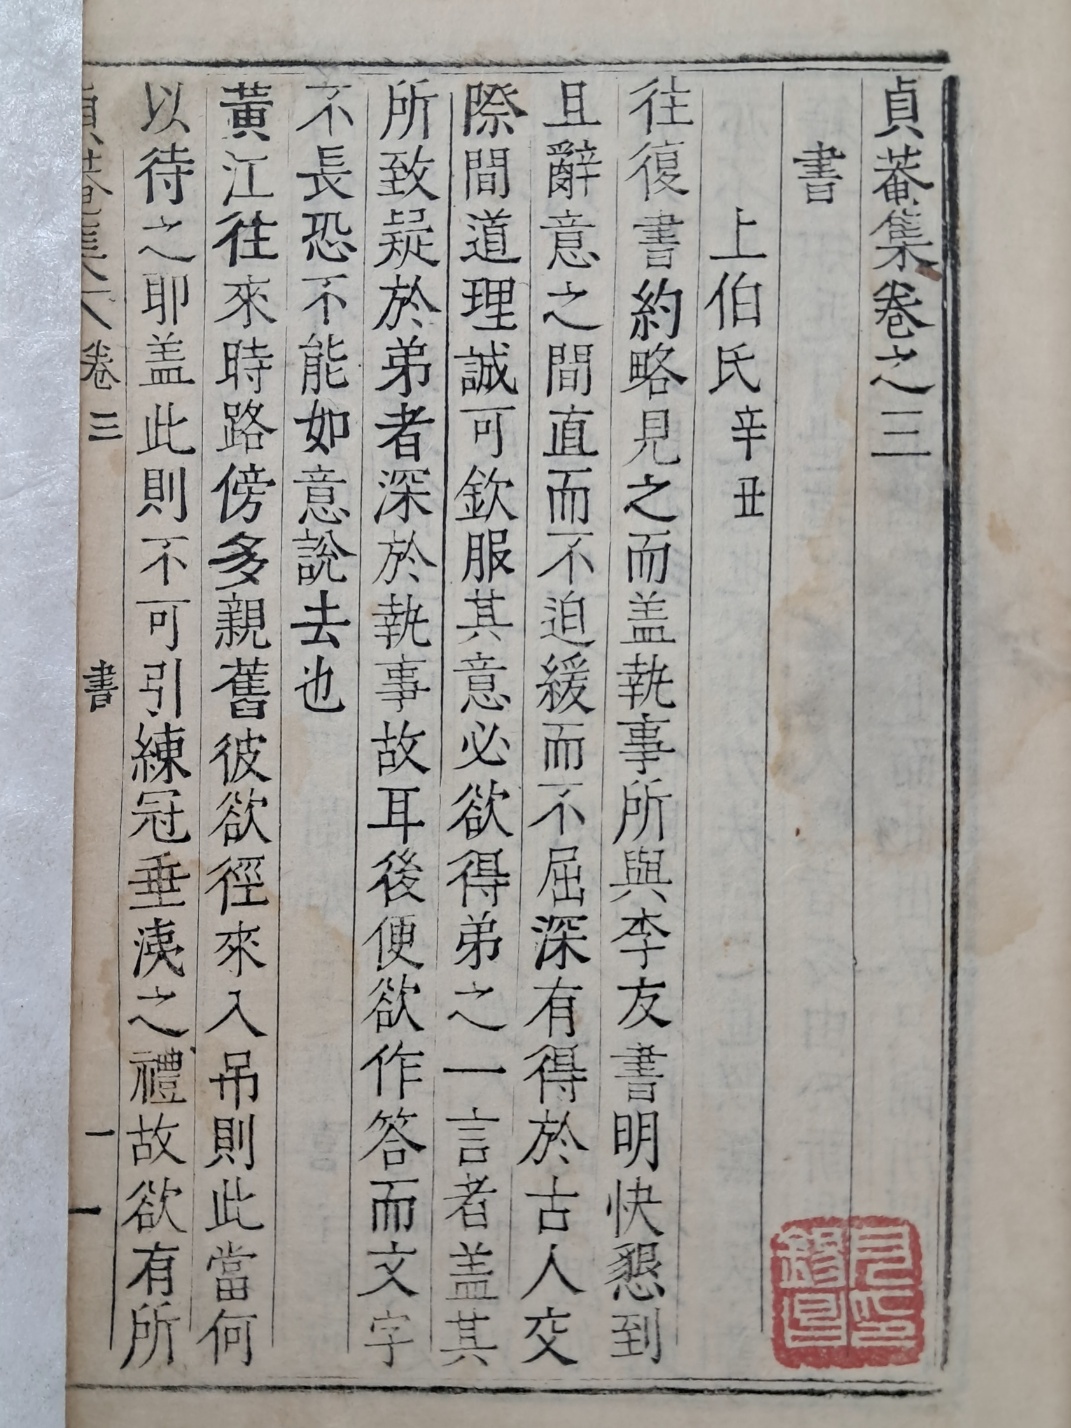 貞菴集卷之三
書
上伯氏 辛丑
往復書約略見之而盖執事所與李友書明快懇到
且辭意之間直而不迫緩而不屈深有得於古人交
際間道理誠可欽服其意必欲得弟之一言者盖其
所致疑於弟者深於執事故耳後便欲作答而文字
不長恐不能如意說去也
黃江往來時路傍多親舊彼欲徑來入吊則此當何
以待之耶盖此則不可引練冠垂洟之禮故欲有所
貞菴集 卷三 書 一